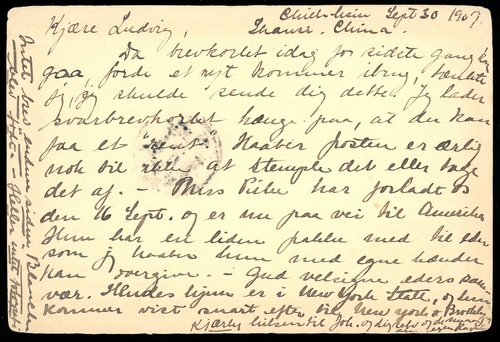 Chieh-hsiu Sept 30 1907.
Shansi. China.
Kjære Ludvig,
Da brevkortet idag for sidste gang kan
gaa, fordi et nyt kommer i brug, tænkte
jeg, jeg skulde sende dig dette. Jeg lader
svarbrevkortet hænge paa, at du kan
faa et "rent". Haaber posten er ærlig
nok til ikke at stemple det eller tage
det af. - Miss Pilie har forladt os
den 16 Sept. og er nu paa vei til Amerika
Hun har en liden pakke med til eder
som jeg haaber hun med egne hænder
kan overgive. - Gud velsigne eders
vær. Hendes hjem er i New York State, og hun
kommer vist snart efter til New York o. Brooklyn
Kjærlig hilsen til Joh. og dig selv og
Intet brev endnu siden